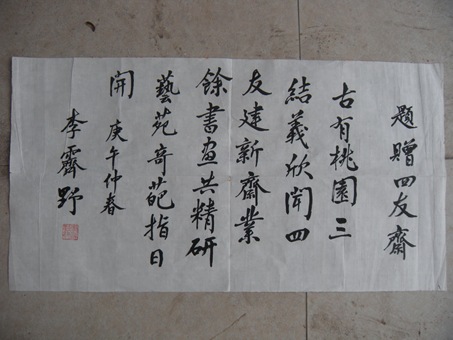 題贈四友齋
古有桃園三
結義欣聞四
友建新齋業
餘書畫共精研
藝苑奇葩指日
開 庚午仲春
李霽野